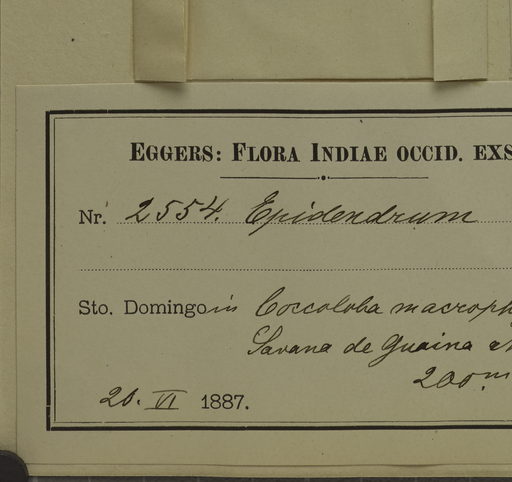 EGGERS: FLORA INDIAE OCCID. EXS
Nr. 2554. Epidendrum
Sto. Domingo in Coccoloba macroph
Savana de Guaina
200.m
20. VI 1887.